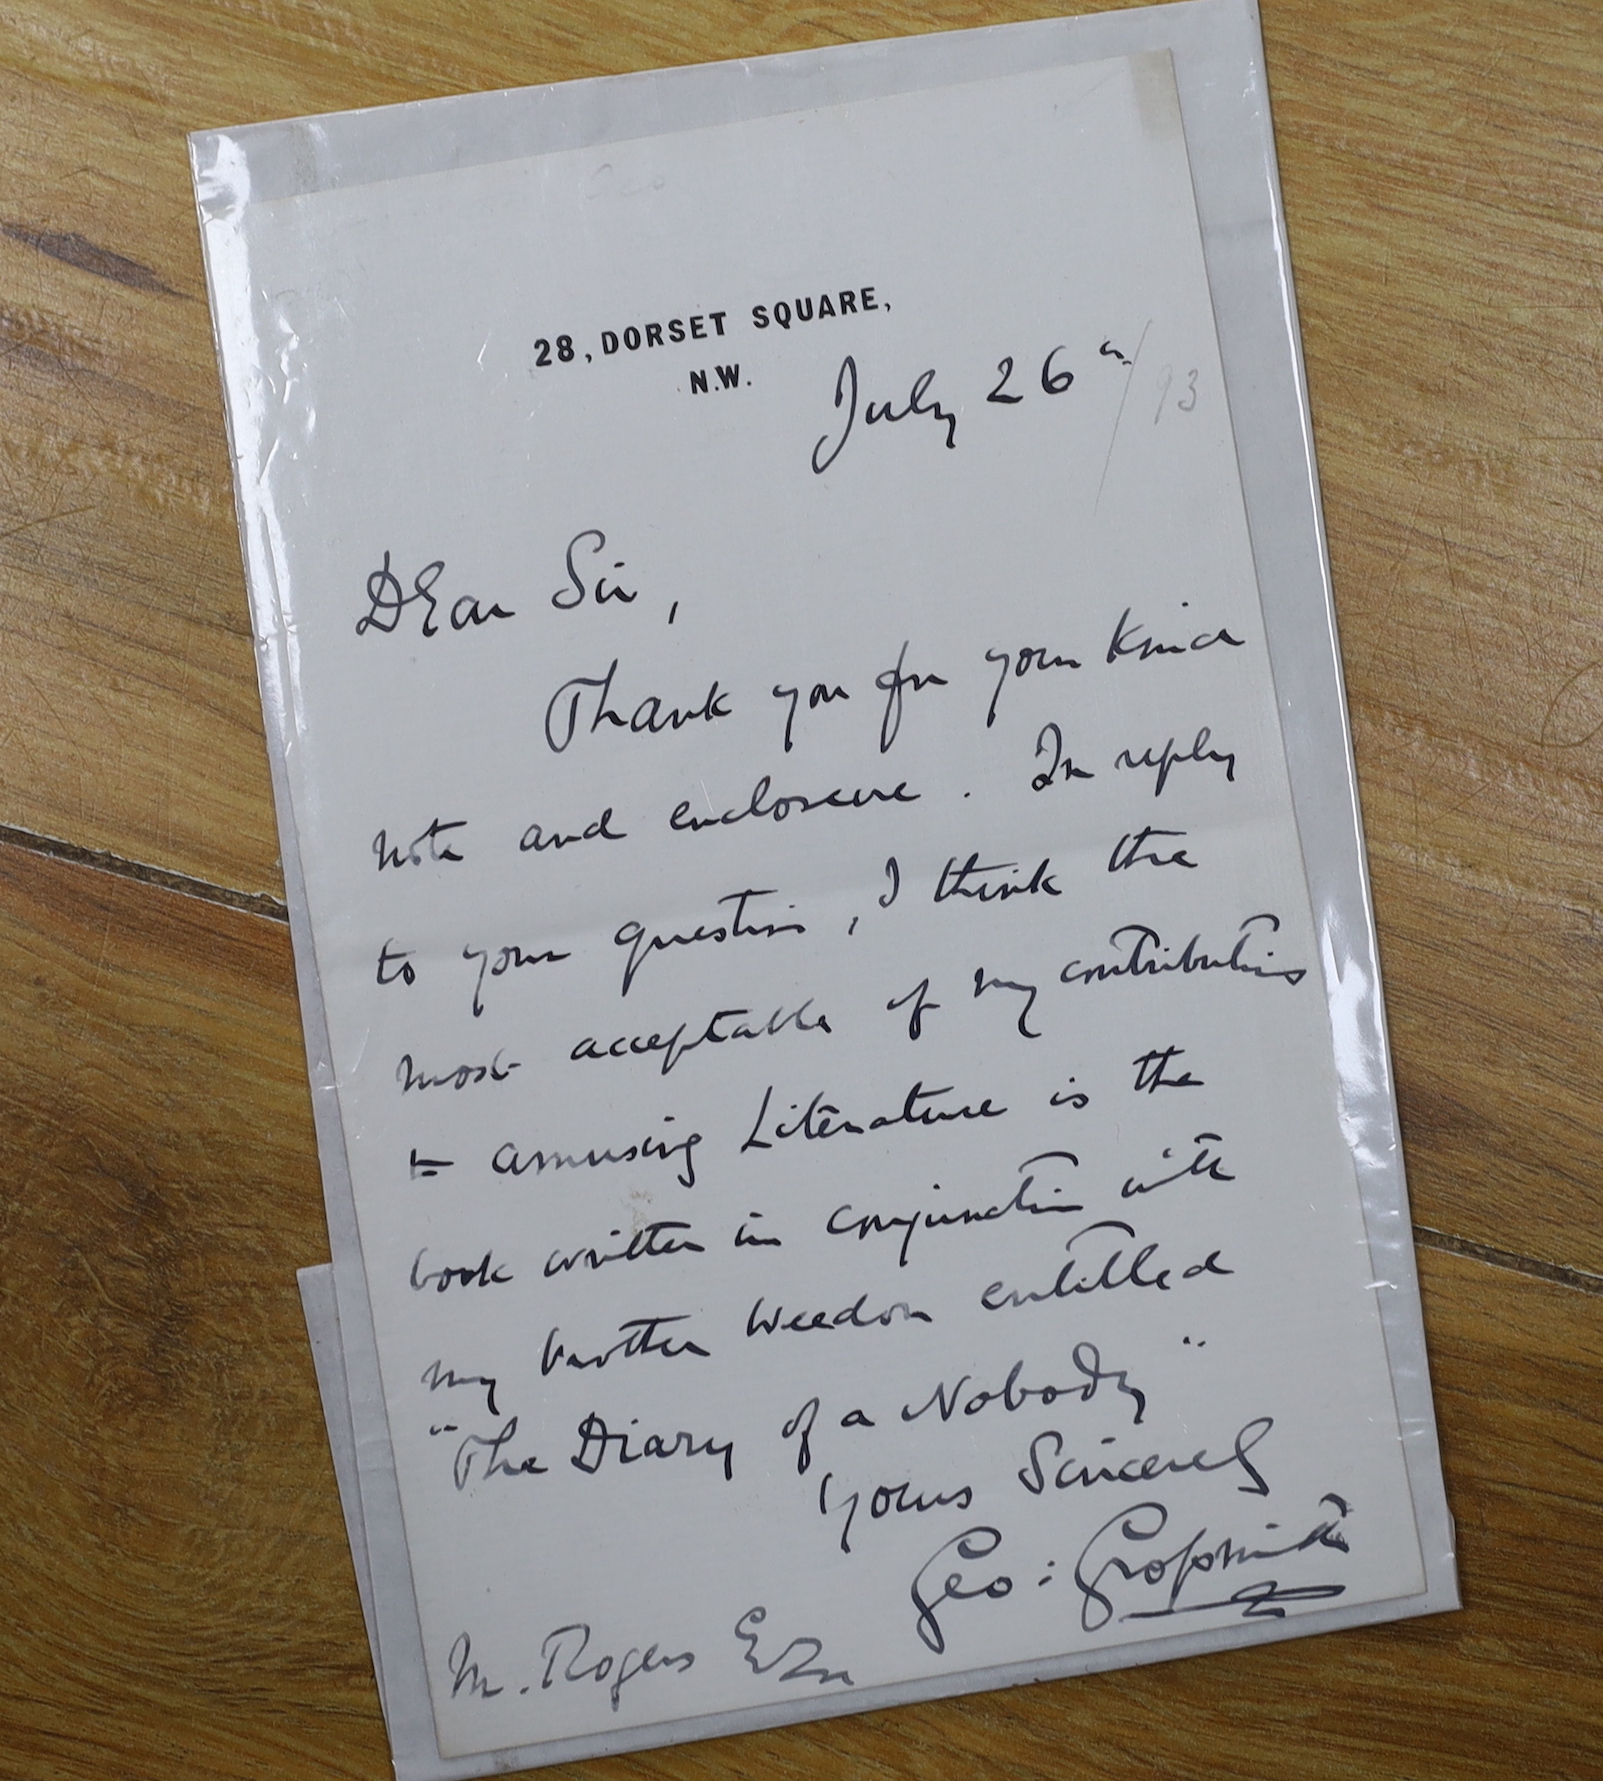 28, DORSET SQUARE,
N.W.
July 26th /93
Dear Sir,
Thank you for your kind
note and enclosure. In reply
to your question, I think the
most acceptable of my contributions
to amusing Literature is the
book written in conjunction with
my brother Weedon entitled
"The Diary of a Nobody"
Yours Sincerely
Geo: Grossmith
M. Rogers Esq